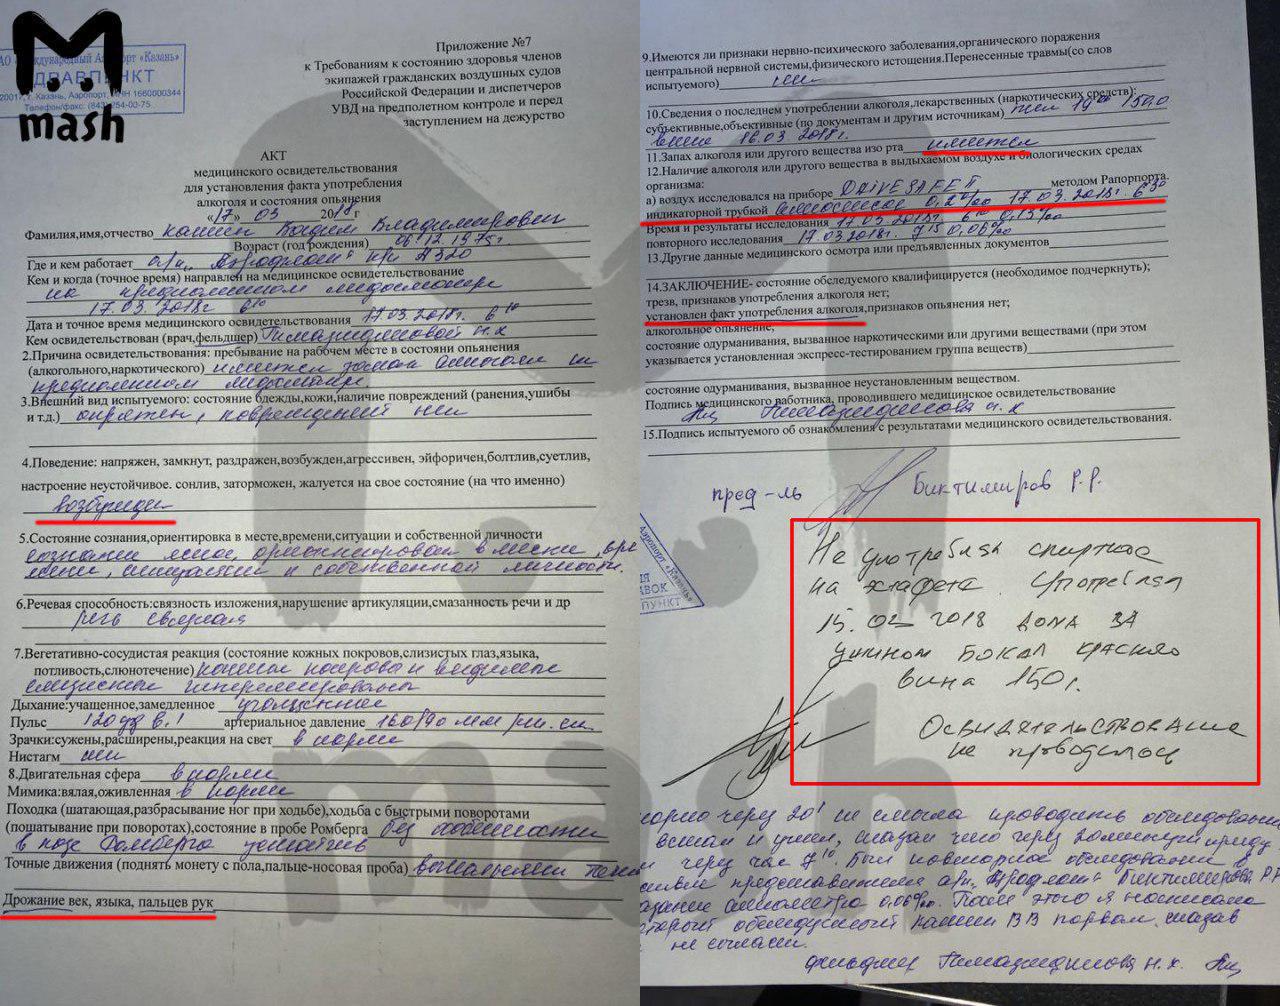 М
mash
АО «Международный Аэропорт «Казань»
ЗДРАВПУНКТ
420017, г. Казань, Аэропорт, ИНН 1660000344
Телефон/факс: (843) 254-00-75
Приложение №7
к Требованиям к состоянию здоровья членов
экипажей гражданских воздушных судов
Российской Федерации и диспетчеров
УВД на предполетном контроле и перед
заступлением на дежурство
АКТ
медицинского освидетельствования
для установления факта употребления
алкоголя и состояния опьянения
«17» 03 2018 г
Фамилия,имя,отчество Вадим Владимирович
Возраст (год рождения) 06.12.1975г.
Где и кем работает а/к „Аэрофлот" А320
Кем и когда (точное время) направлен на медицинское освидетельствование
на предполетном медосмотре
17.03.2018г 6 10
Дата и точное время медицинского освидетельствования 17.03.2018г. 6 10
Кем освидетельствован (врач,фельдшер) Н.Х
2.Причина освидетельствования: пребывание на рабочем месте в состоянии опьянения
(алкогольного,наркотического) имеется запах алкоголя на
предполетном медосмотре.
3.Внешний вид испытуемого: состояние одежды,кожи,наличие повреждений (ранения,ушибы
и т.д.) опрятен, повреждений нет
4.Поведение: напряжен, замкнут, раздражен,возбужден,агрессивен, эйфоричен,болтлив,суетлив,
настроение неустойчивое. сонлив, заторможен, жалуется на свое состояние (на что именно)
возбужден
5.Состояние сознания,ориентировка в месте,времени,ситуации и собственной личности
сознание ясное, ориентирован в месте, вре
мени, ситуации и собственной личности.
6.Речевая способность:связность изложения,нарушение артикуляции,смазанность речи и др
речь связная
7.Вегетативно-сосудистая реакция (состояние кожных покровов,слизистых глаз,языка,
потливость,слюнотечение) кожные покровы и видимые
слизистые гиперемированы
Дыхание:учащенное,замедленное учащенное
Пульс 120 уд в 1 артериальное давление 160/90 мм рт.ст.
Зрачки:сужены,расширены,реакция на свет в норме
Нистагм нет
8.Двигательная сфера в норме
Мимика:вялая,оживленная в норме
Походка (шатающая,разбрасывание ног при ходьбе),ходьба с быстрыми поворотами
(пошатывание при поворотах),состояние в пробе Ромберга без особенностей
в позе Ромберга устойчив
Точные движения (поднять монету с пола,пальце-носовая проба) выполняет
Дрожание век, языка, пальцев рук
9.Имеются ли признаки нервно-психического заболевания,органического поражения
центральной нервной системы,физического истощения.Перенесенные травмы(со слов
испытуемого) нет
10.Сведения о последнем употреблении алкоголя,лекарственных (наркотических средств):
субъективные,объективные (по документам и другим источникам) 19 00 150,0
вина 16.03 2018г.
11.Запах алкоголя или другого вещества изо рта имеется
12.Наличие алкоголя или другого вещества в выдыхаемом воздухе и биологических средах
организма:
а) воздух исследовался на приборе DRIVESAFE II методом Рапорпорта.
индикаторной трубкой 0,2‰ 17.03.2018г. 6 30
Время и результаты исследования 17.03 2018г. 0,15‰
повторного исследования 17.03 2018г. 7 15 0,06‰
13.Другие данные медицинского осмотра или предъявленных документов
14.ЗАКЛЮЧЕНИЕ- состояние обследуемого квалифицируется (необходимое подчеркнуть);
трезв, признаков употребления алкоголя нет;
установлен факт употребления алкоголя,признаков опьянения нет;
алкогольное опьянение;
состояние одурманивания, вызванное наркотическими или другими веществами (при этом
указывается установленная экспресс-тестированием группа веществ)
состояние одурманивания, вызванное неустановленным веществом.
Подпись медицинского работника, проводившего медицинское освидетельствование
15.Подпись испытуемого об ознакомления с результатами медицинского освидетельствования.
пред-ль Биктимиров Р.Р.
Аэропорт «Казань»
Не употреблял спиртное
на эстафета. Употреблял
15.03 2018 дома за
ужином бокал красного
вина 150г.
Освидетельствование
не проводилось
через 20' проводить
встал и ушел, сказал через 20 минут приду
через час 7 10. Был повторное обследование в
представителя а/к Аэрофлот Биктимирова Р.Р
0.06‰. После этого я написала
порвал, сказав
не согласен.
фельдшер Н.Х.